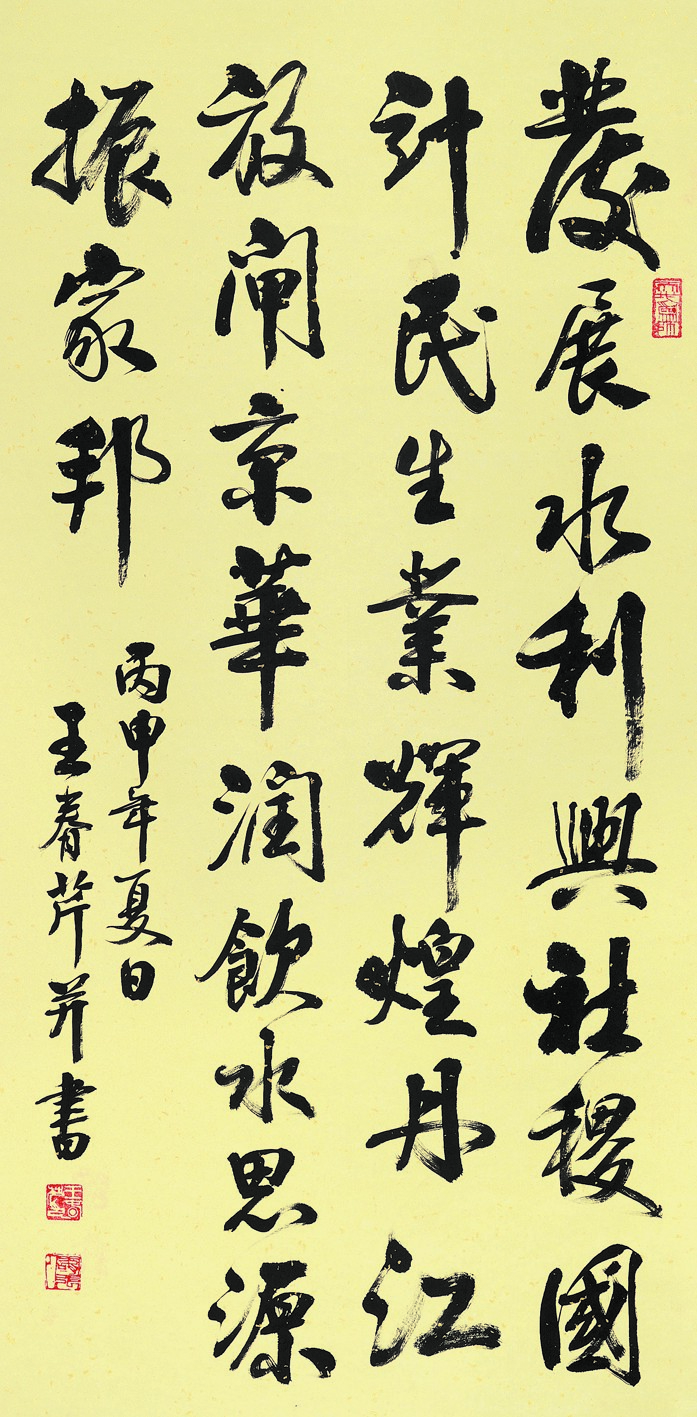 發展水利興社稷國
計民生業輝煌丹江
放闸京華润飲水思源
振家邦
丙申年夏日
王春芹并書